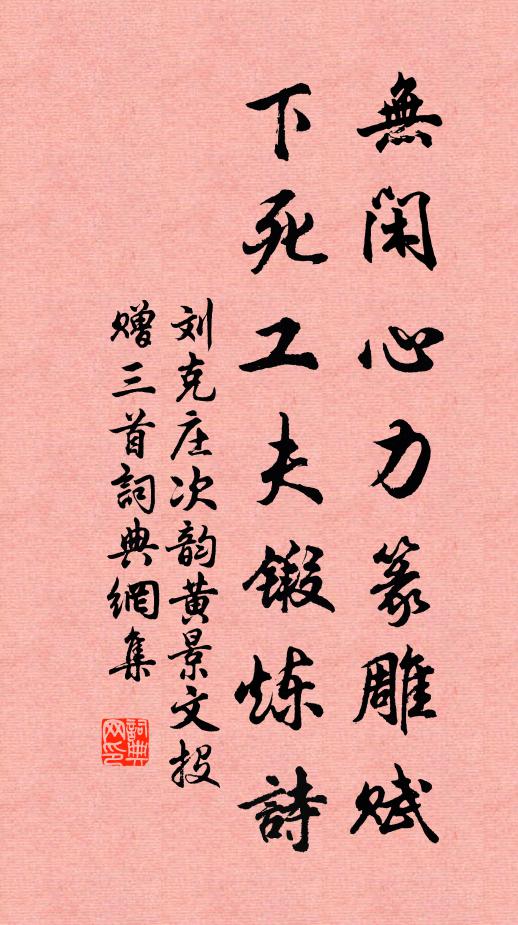 無闲心力篆雕赋
下死工夫锻炼詩
刘克庄次韵黄景文投
赠三首詞典網集
詞典
网印